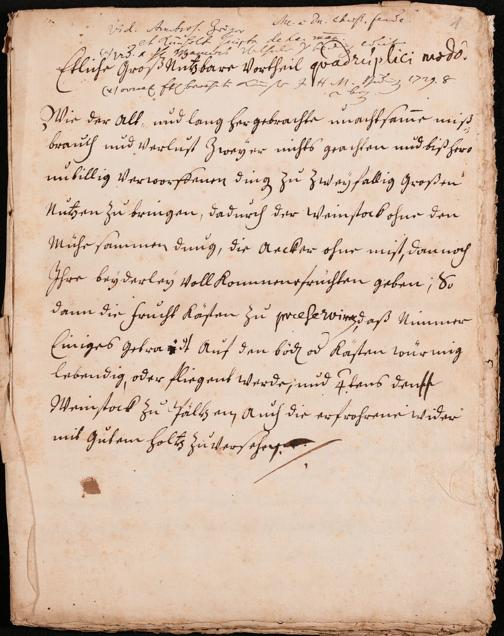 Vid.
1729. 8
Etliche Groß Nutzbare Vortheil quadruplici modô.
Wie der Alt, und lang hergebrachte unachtsamme miß-
brauch und Verlust Zweyer nichts geachten und bißhero
unbillig verworffenen ding zu Zweyfaltig Großen
Nutzen zu bringen, dadurch der Weinstock ohne den
Mühesammen dung, die Aecker ohne mist, dannoch
Ihre beyderley Vollkommene früchten geben; So
dann die frucht Kästen zu praeserviren, daß Nimmer
Einiges getraidt Auf den böd. od. Kästen würmig
lebendig, oder fliegent werde; und 4tens den
Weinstock zu Pältzen, Auch die erfrohrene wider
mit Gutem holtz zu versehen.